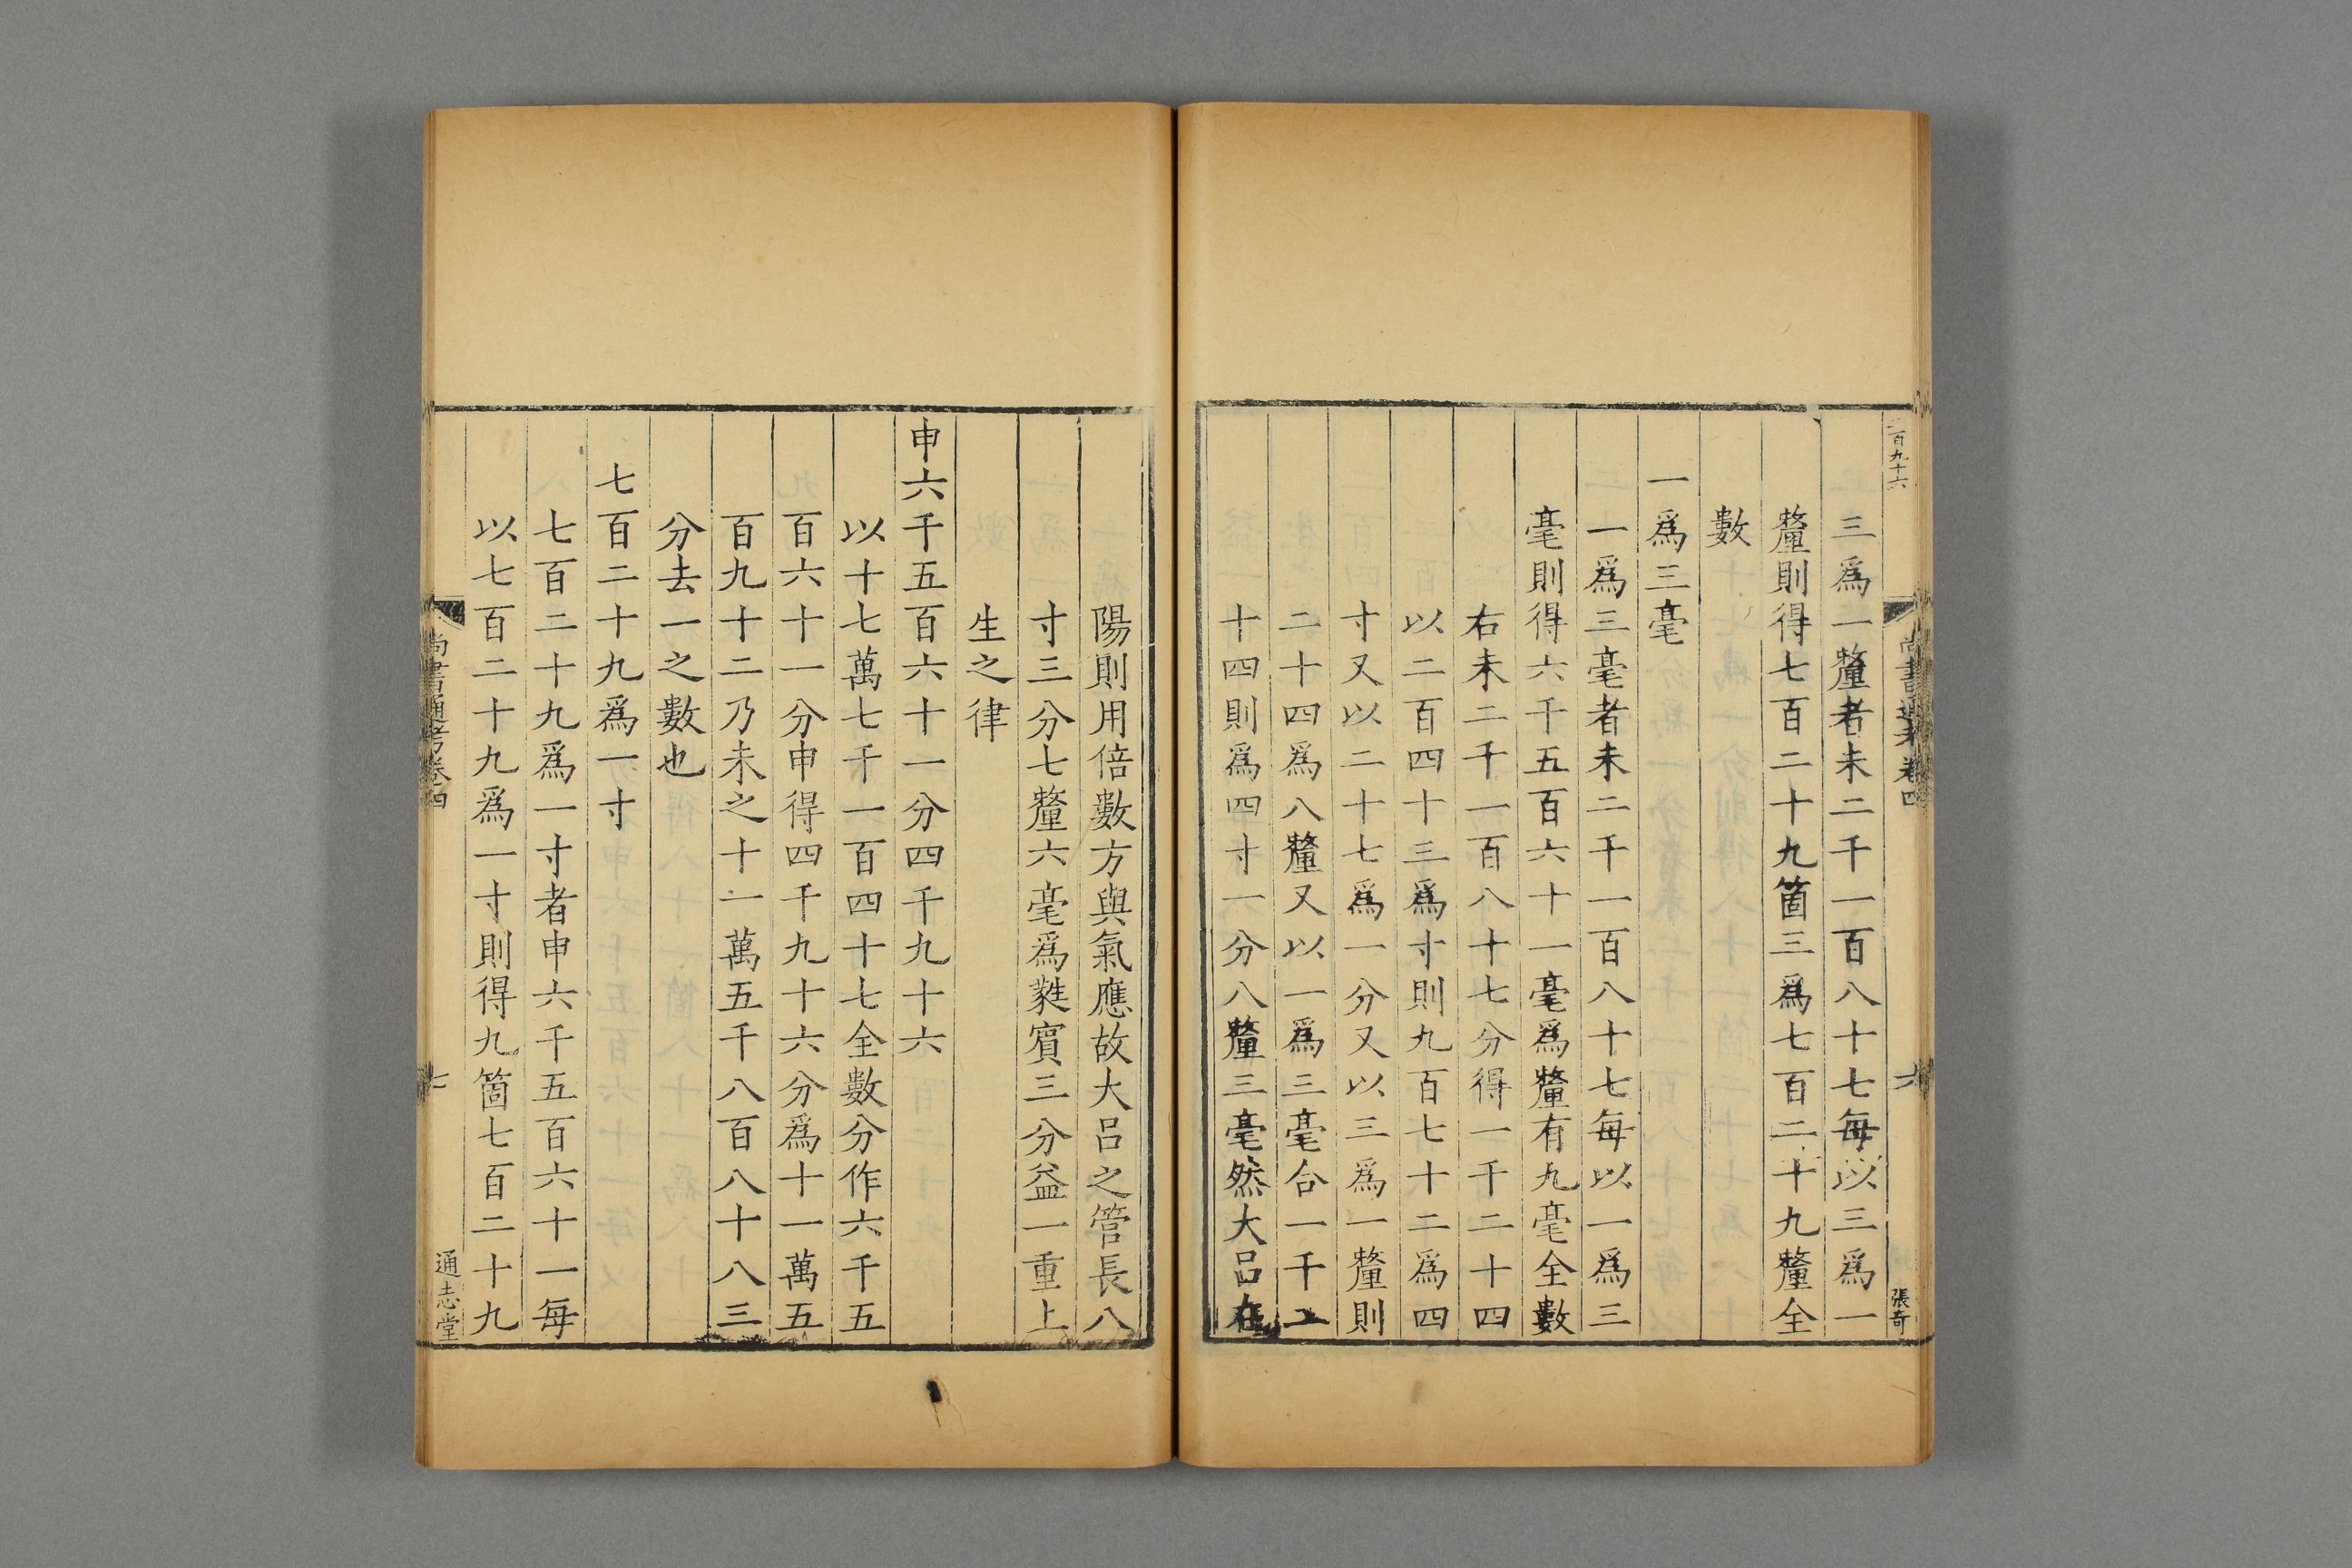 二百九十六
尚書通考卷四
六
張奇
三爲一釐者未二千一百八十七每以三爲一
釐則得七百二十九箇三爲七百二十九釐全
數
一爲三毫
一爲三毫者未二千一百八十七每以一爲三
毫則得六千五百六十一毫爲釐有九毫全數
右未二千一百八十七分得一千二十四
以二百四十三爲寸則九百七十二爲四
寸又以二十七爲一分又以三爲一釐則
二十四爲八釐又以一爲三毫合一千二
十四則爲四寸一分八釐三毫然大呂在
陽則用倍數方與氣應故大呂之管長八
寸三分七釐六毫爲蕤賓三分益一重上
生之律
申六千五百六十一分四千九十六
以十七萬七千一百四十七全數分作六千五
百六十一分申得四千九十六分爲十一萬五
百九十二乃未之十一萬五千八百八十八三
分去一之數也
七百二十九爲一寸
七百二十九爲一寸者申六千五百六十一每
以七百二十九爲一寸則得九箇七百二十九
尚書通考卷四
七
通志堂